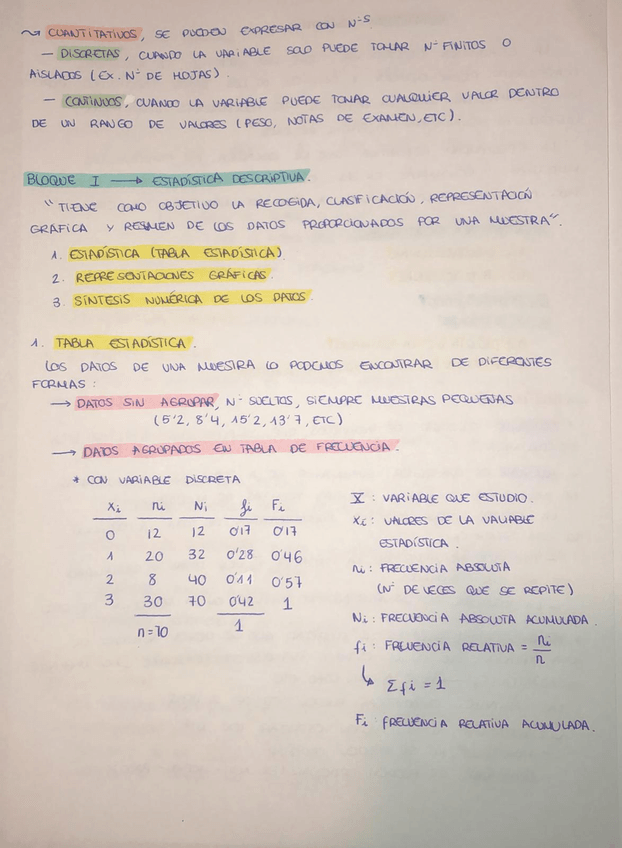 ⤳ CUANTITATIVOS, SE PUEDEN EXPRESAR CON Nº S
– DISCRETAS, CUANDO LA VARIABLE SOLO PUEDE TOMAR Nº FINITOS O
AISLADOS (EX. Nº DE HOJAS).
– CONTINUOS, CUANDO LA VARIABLE PUEDE TOMAR CUALQUIER VALOR DENTRO
DE UN RANGO DE VALORES (PESO, NOTAS DE EXAMEN, ETC).
BLOQUE I → ESTADÍSTICA DESCRIPTIVA.
"TIENE COMO OBJETIVO LA RECOGIDA, CLASIFICACIÓN, REPRESENTACIÓN
GRÁFICA Y RESUMEN DE LOS DATOS PROPORCIONADOS POR UNA MUESTRA".
1. ESTADÍSTICA (TABLA ESTADÍSTICA)
2. REPRESENTACIONES GRÁFICAS.
3. SÍNTESIS NUMÉRICA DE LOS DATOS.
1. TABLA ESTADÍSTICA.
LOS DATOS DE UNA MUESTRA LO PODEMOS ENCONTRAR DE DIFERENTES
FORMAS:
→ DATOS SIN AGRUPAR, Nº SUELTOS, SIEMPRE MUESTRAS PEQUEÑAS
(5'2, 8'4, 15'2, 13'7, ETC)
→ DATOS AGRUPADOS EN TABLA DE FRECUENCIA.
* CON VARIABLE DISCRETA
Xi ni Ni fi Fi
0 12 12 0'17 0'17
1 20 32 0'28 0'46
2 8 40 0'11 0'57
3 30 70 0'42 1
n=70 1
X: VARIABLE QUE ESTUDIO.
Xi: VALORES DE LA VALIABLE
ESTADÍSTICA.
ni: FRECUENCIA ABSOLUTA
(Nº DE VECES QUE SE REPITE)
Ni: FRECUENCIA ABSOLUTA ACUMULADA.
fi: FRECUENCIA RELATIVA = ni/n
↳ Σfi = 1
Fi: FRECUENCIA RELATIVA ACUMULADA.